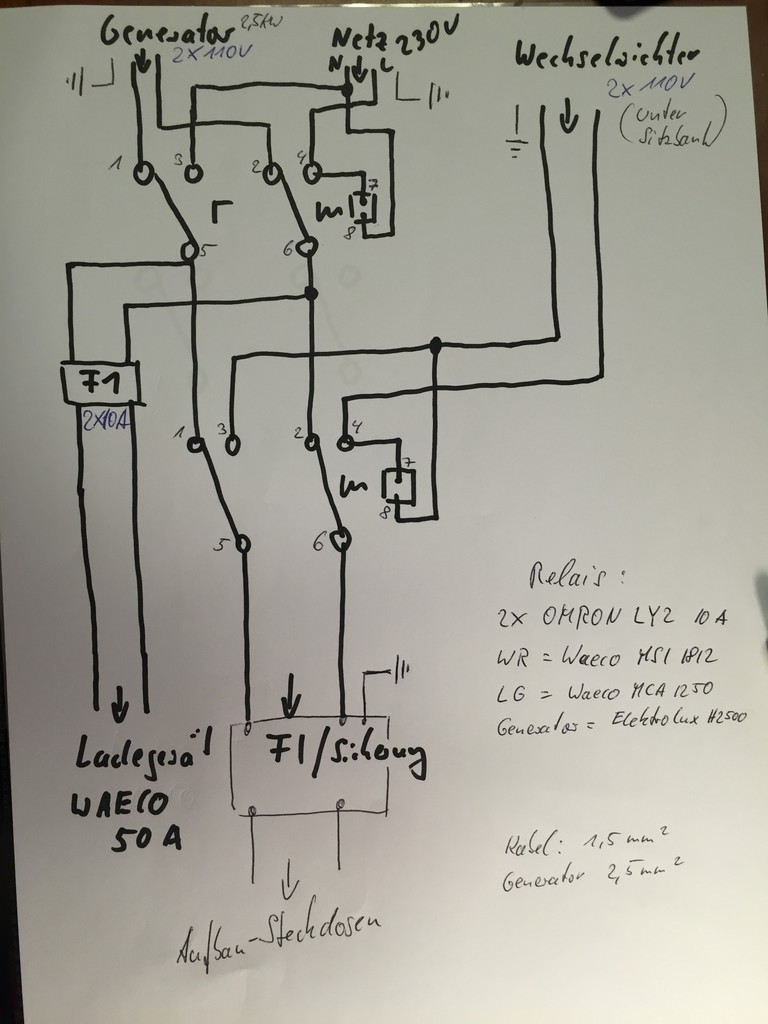 Generator 2,5kW
2x110V
Netz 230V
N L
Wechselrichter
2x 110V
(unter
Sitzbank)
1 3 2 4
7
r m
8
5 6
F1
2x10A
1 3 2 4
7
m
8
5 6
Relais:
2x OMRON LY2 10A
WR = Waeco MSI 1812
LG = Waeco MCA 1250
Generator = Elektrolux H2500
Ladegerät
WAECO
50A
FI/Sicherung
Kabel: 1,5mm²
Generator 2,5mm²
Aufbau-Steckdosen